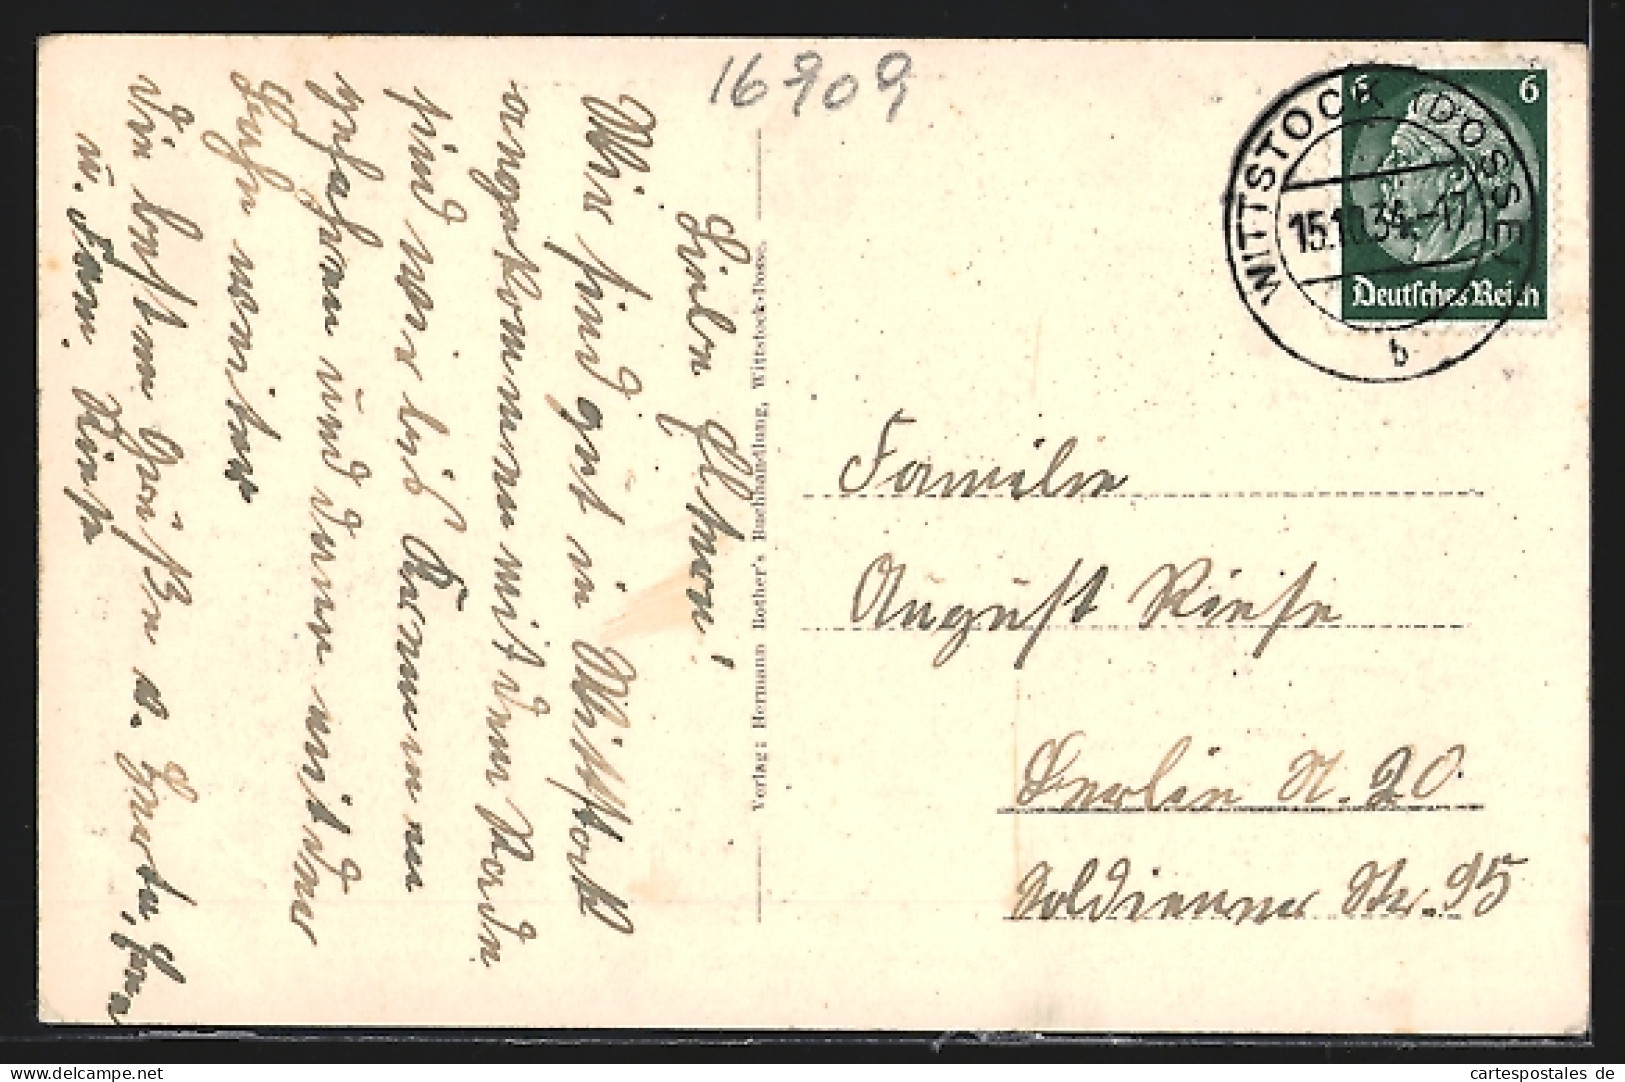 16909
Liebe Eltern!
Wir sind gut in Wittstock
angekommen mit dem Rade
sind wir bis Kremmen
gefahren und dann mit der
Bahn weiter
Die besten Grüße v.
u. Fam.
Verlag: Hermann Rother's Buchhandlung, Wittstock-Dosse.
WITTSTOCK (DOSSE)
15.10.34.-17
b
6 6
Deutsches Reich
Familie
August Riese
Berlin N. 20
Soldiener Str. 95
cartespostales de
www.delcampe.net